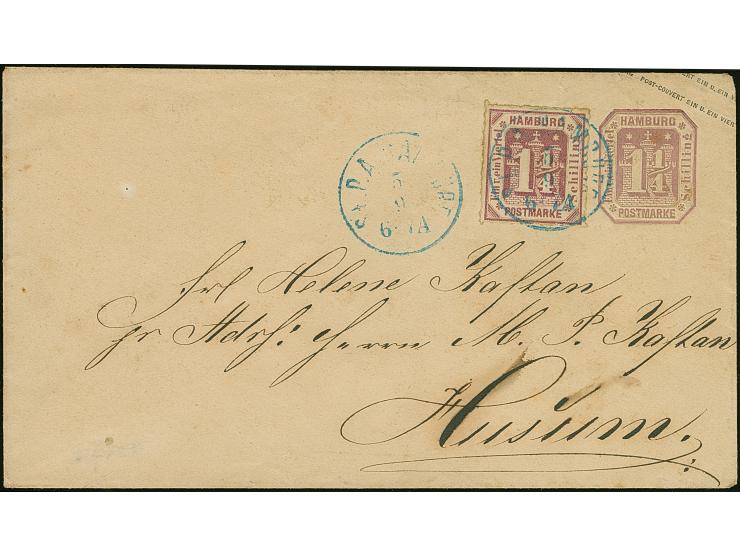 POST-COUVERT EIN U. EIN VIER
HAMBURG
Ein ein Viertel
1¼
Schilling
POSTMARKE
HAMBURG
1¼
Schilling
POSTMARKE
5
9
Frl Helene Kaftan
pr Adrs: Herrn M. P. Kaftan
Husum.